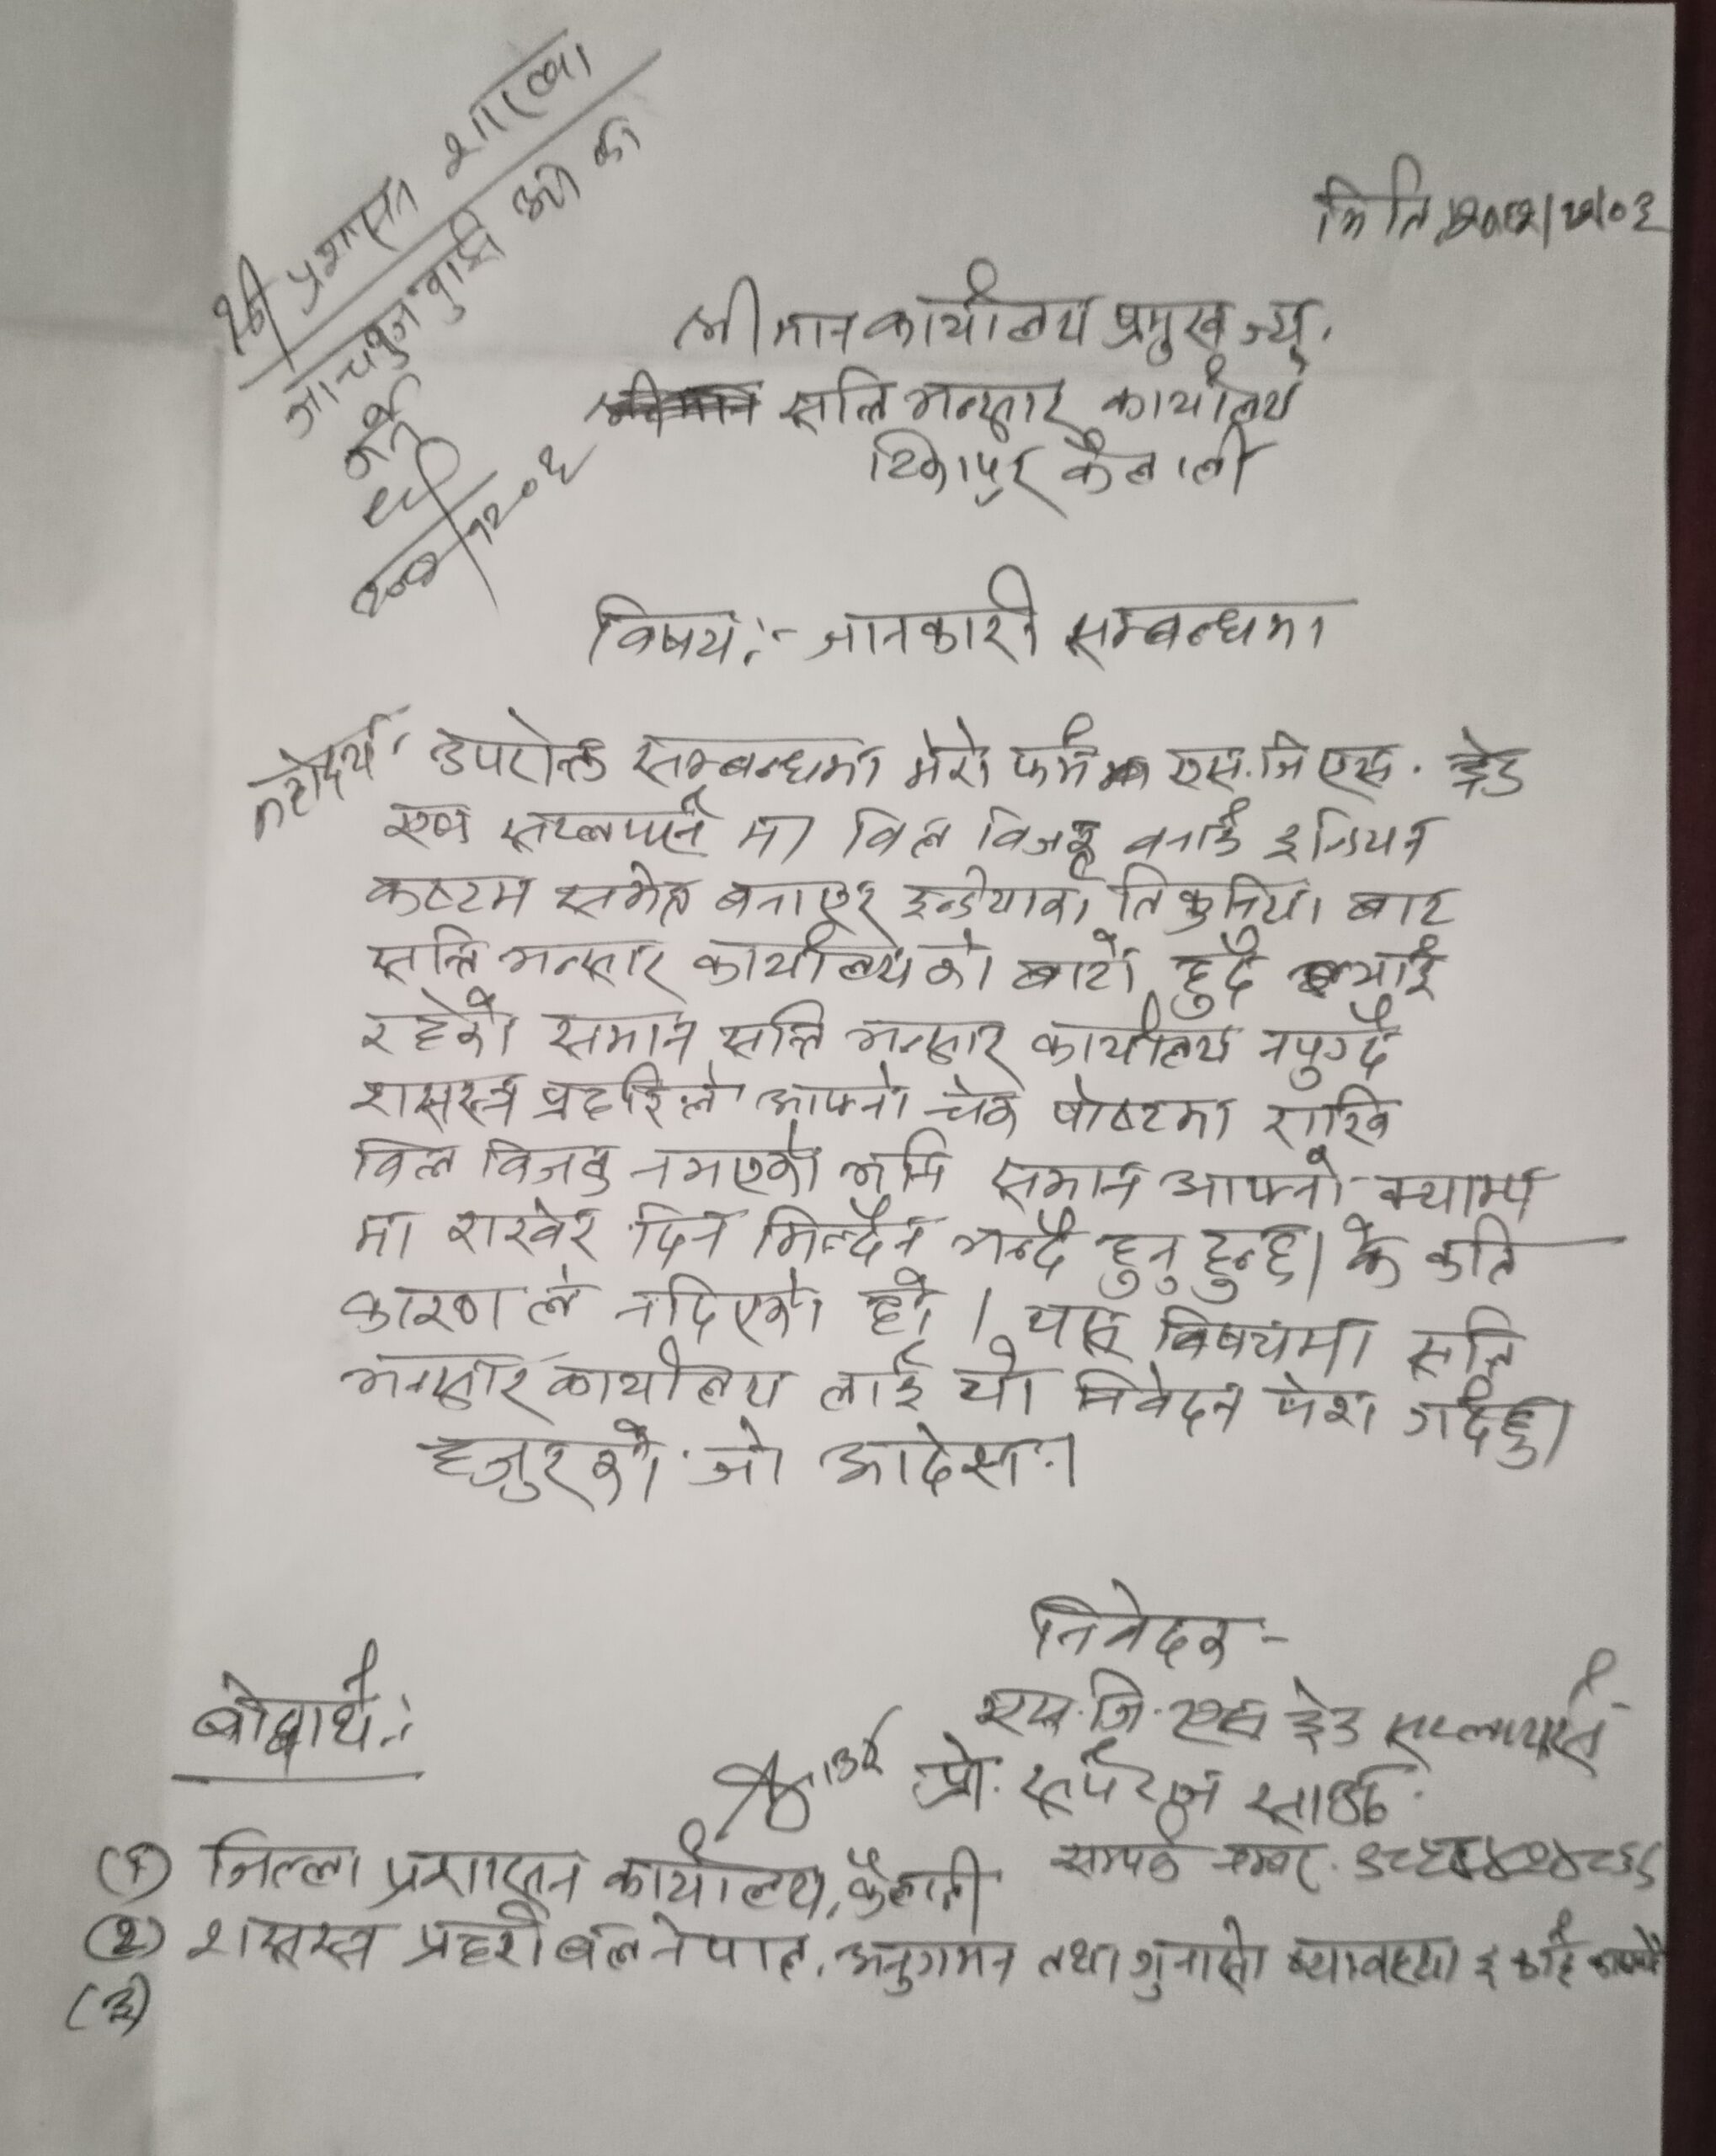 श्री प्रशासन शाखा
जाचबुज गरी
गर्ने
मिति
श्रीमान कार्यालय प्रमुख ज्यू,
सत्ति भन्सार कार्यालय
टिकापुर कैलाली
विषय:- जानकारी सम्बन्धमा
महोदय, उपरोक्त सम्बन्धमा मेरो फर्म एस.जि.एस. ट्रेड
एण्ड सप्लायर्स मा विल विजक वनाई इन्डियन
कष्टम समेत बनाएर इन्डियाको तिकुनिया बाट
सत्ति भन्सार कार्यालयको बाटो हुदै ल्याई
रहेको समान सत्ति भन्सार कार्यालय नपुग्दै
शसस्त्र प्रहरिले आफ्नो चेक पोष्टमा राखि
विल विजक नभएको भनि समान आफ्नो क्याम्प
मा राखेर दिन मिल्दैन भन्दै हुनु हुन्छ। के कति
कारण ले नदिएको हो । यस विषयमा सत्ति
भन्सार कार्यालय लाई यो निवेदन पेश गर्दछु।
हजुरको जो आदेस।
निवेदक -
एस.जि.एस ट्रेड सप्लायर्स
प्रो.
सम्पर्क नम्बर.
बोधार्थ:
(१) जिल्ला प्रशासन कार्यालय, कैलाली
(२) शसस्त्र प्रहरी बल नेपाल, अनुगमन तथा गुनासो
(३)